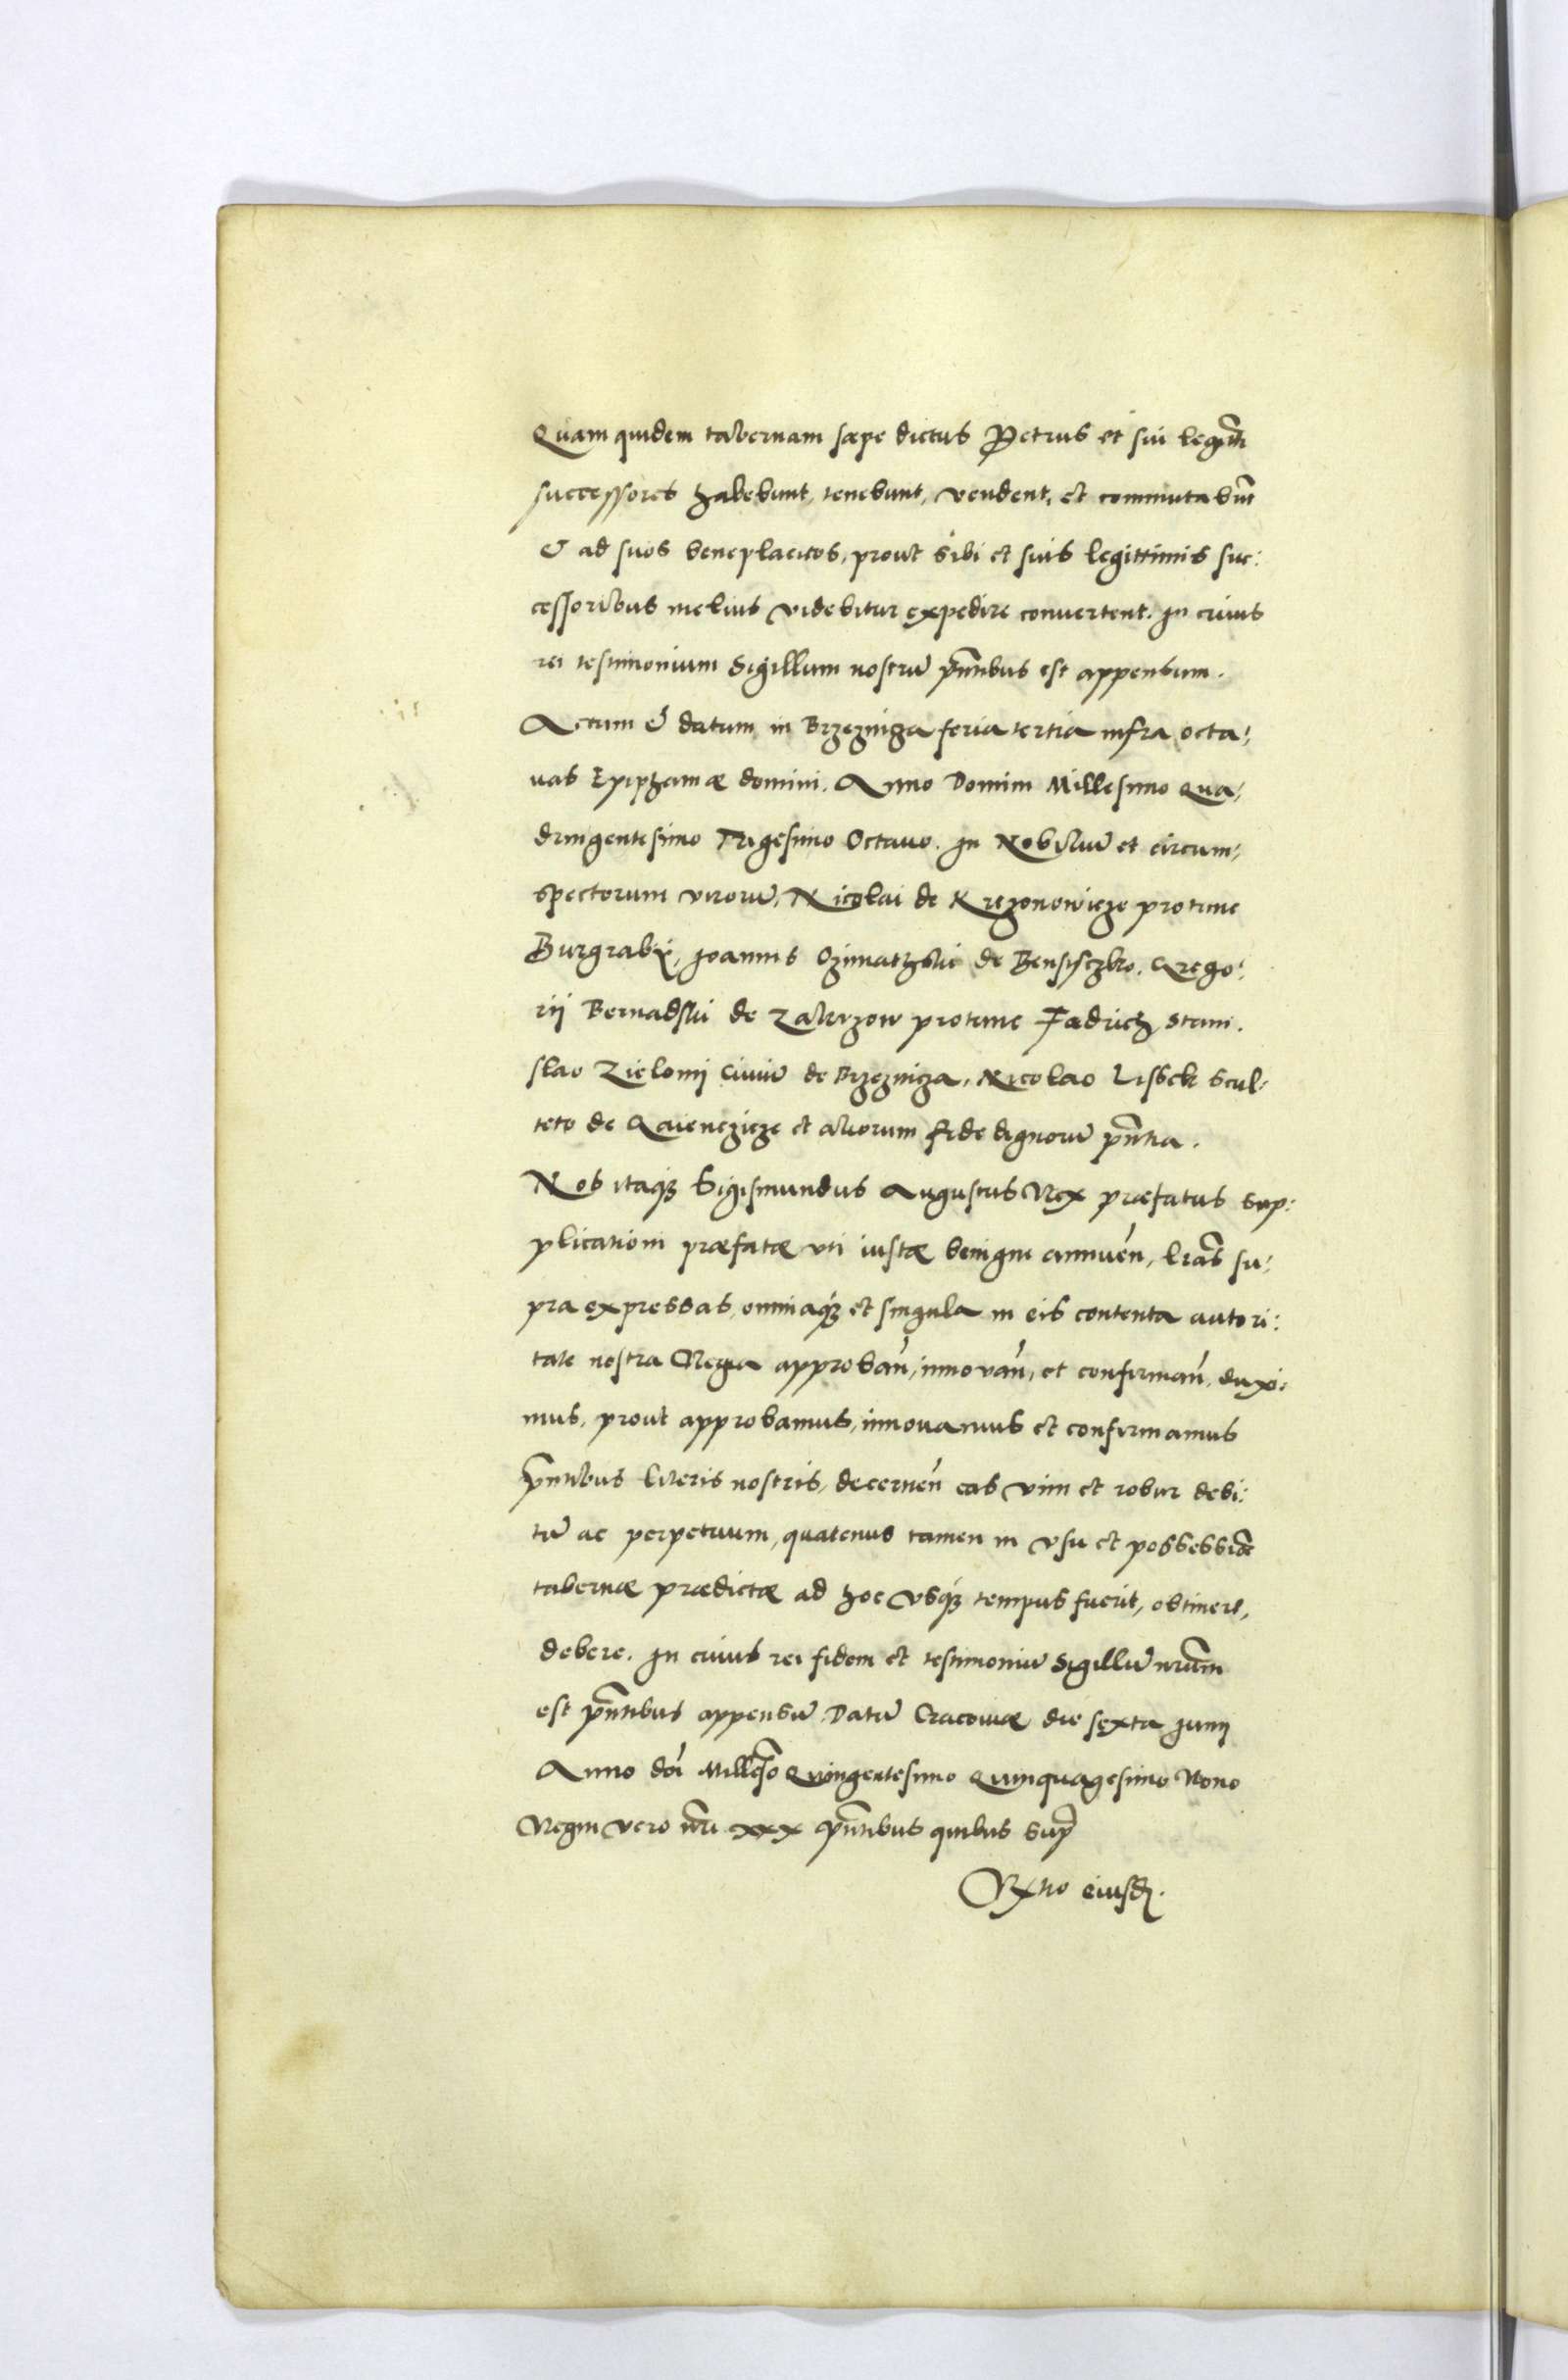 Quam quidem tabernam sæpe dictus Petrus et sui legitm̃i
successores habebunt, tenebunt, vendent, et commutabūt
& ad suos beneplacitos, prout sibi et suis legittimis suc:
cessoribus melius videbitur expedire convertent. In cuius
rei testimonium Sigillum nostrū pñtibus est appensum.
Actum & datum in Brzezniza feria tertia infra octa:
vas Epiphaniæ domini. Anno Domini Millesimo Qua:
dringentesimo Trigesimo Octavo. In Nobiliū et circum:
spectorum virorū, Nicolai de Krezonowicze protunc
Burgrabij, Joannis Ozimathskie de Bensisczko. Grego:
rii Bernadski de Zakrzow protunc Fadrich, Stani.
slao Zielonij Civiū de Brzezniza, Nicolao Lissek Scul:
teto de Gaienczicze et aliorum fide dignorū pñtia.
Nos itaq; Sigismundus Augustus Rex præfatus sup:
plicationi præfatæ vti iustæ benigne annuen̄, lr̃as su:
pra expressas, omniaq; et singula in eis contenta autori:
tate nostra Regia approban̄, innovan̄, et confirman̄, duxi:
mus, prout approbamus, innovamus et confirmamus
pñtibus literis nostris, decernen̄ eas vim et robur debi:
tū ac perpetuum, quatenus tamen in vsu et possessiõe
tabernæ prædictæ ad hoc vsq; tempus fuerit, obtinere,
debere. In cuius rei fidem et testimoniū Sigillū nr̃um
est pñtibus appensū Datū Cracoviæ die sexta Junij
Anno dn̄i Millẽso Quingentesimo Quinquagesimo Nono
Regni vero nr̃i xxx pñtibus quibus sup̃
Rxtio eiusd.